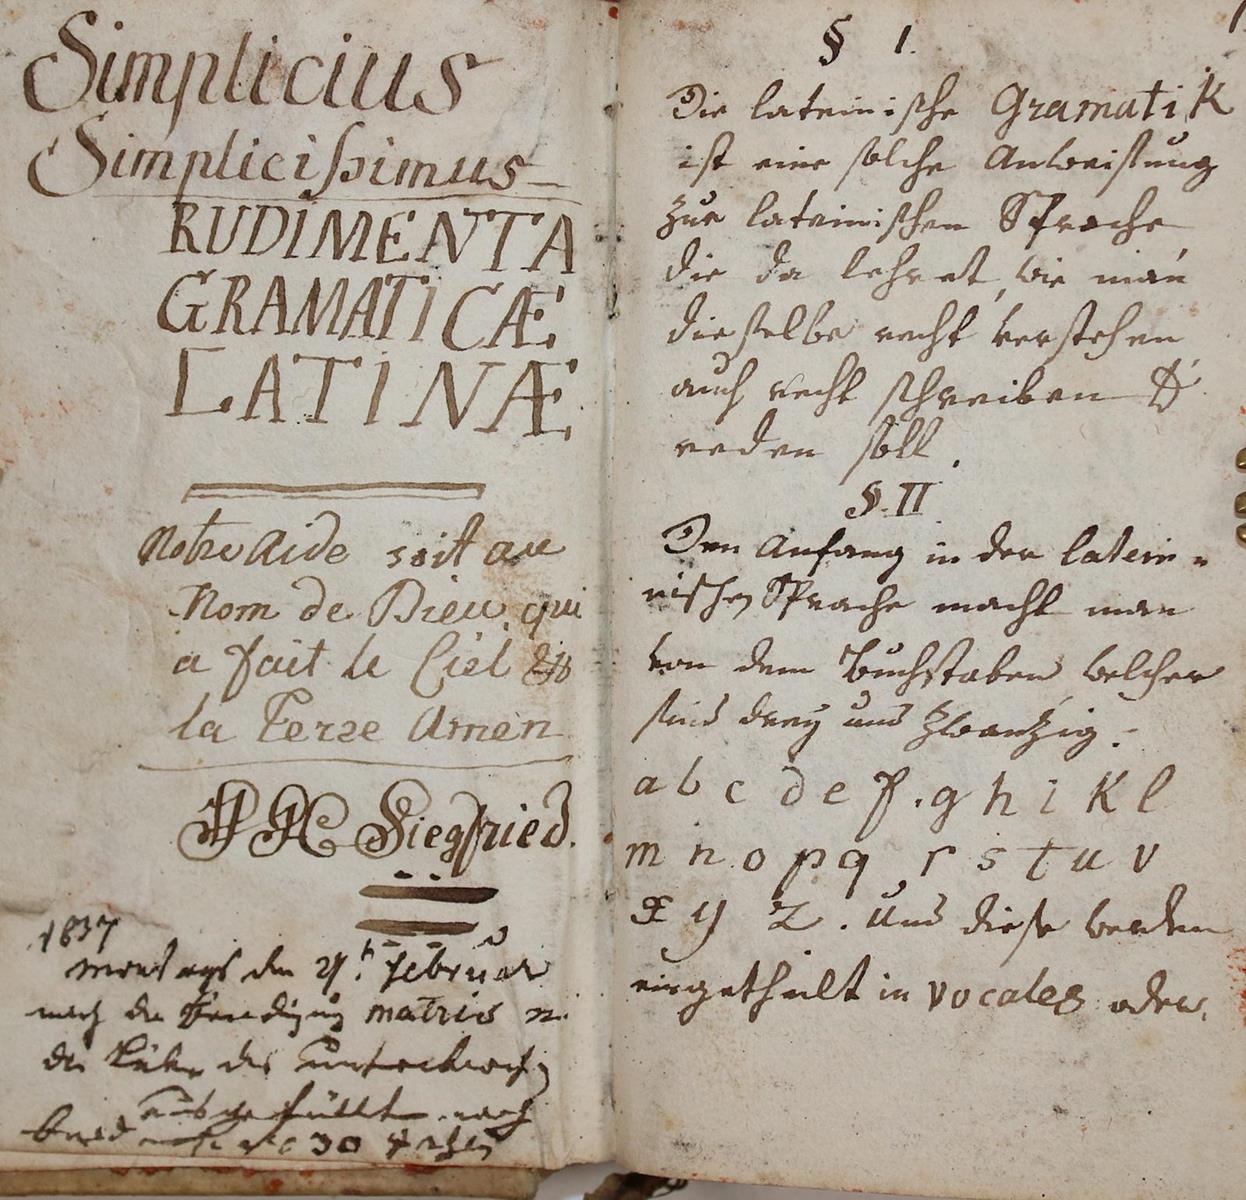 Simplicius
Simplicissimus
RUDIMENTA
GRAMATICÆ
LATINÆ
Notre Aide soit au
Nom de Dieu, qui
a fait le Ciel &
la Terre Amen
Siegfried.
1837
den Februar
nach der matris
der des
ausgefüllt nach
30
§ 1.
Die lateinische Gramatik
ist eine solche Anweisung
zur lateinischen Sprache
die da lehret, wie man
dieselbe recht verstehen
auch recht schreiben &
reden soll.
§. II
Den Anfang in der latein=
nischen Sprache macht man
von dem Buchstaben welcher
sind drey und zwantzig.
a b c d e f. g h i k l
m n o p q r s t u v
x y z. Und diese werden
eingetheilt in vocales oder